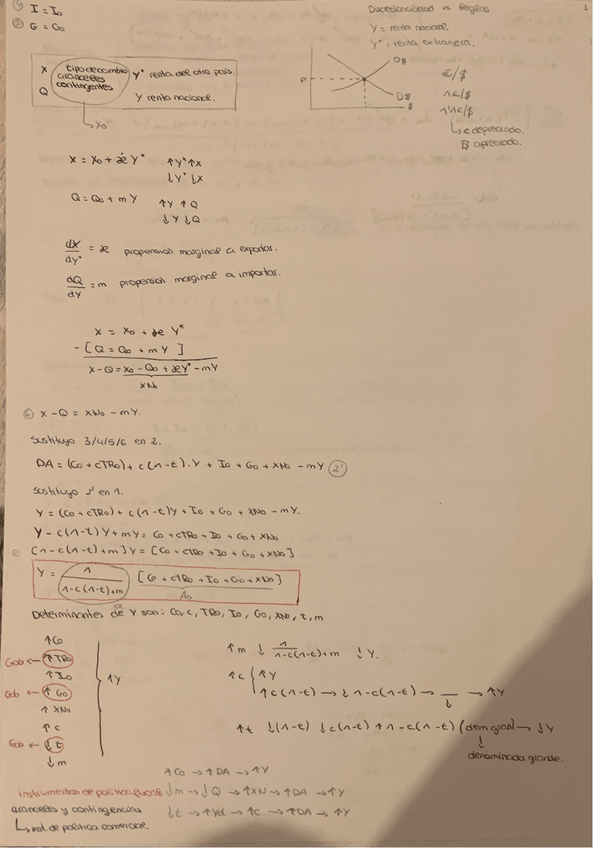 ④ I = I₀
⑤ G = G₀
Discrecionalidad vs Reglas
Y = renta nacional.
Y* = renta extranjera.
X tipo de cambio Y* renta del otro país.
aranceles
contingentes
Q Y renta nacional.
↳ X₀
O$
D$
$
€/$
↑€/$
↑↑€/$
↳ € depreciando.
$ apreciado.
X = X₀ + æ Y* ↑Y* ↑X
↓Y* ↓X
Q = Q₀ + m Y ↑Y ↑Q
↓Y ↓Q
dX/dY* = æ propensión marginal a exportar.
dQ/dY = m propensión marginal a importar.
X = X₀ + æ Y*
- [Q = Q₀ + m Y ]
X - Q = X₀ - Q₀ + æY* - mY
XN₀
⑥ X - Q = XN₀ - mY.
Sustituyo 3/4/5/6 en 2.
DA = (C₀ + cTR₀) + c(1-t).Y + I₀ + G₀ + XN₀ - mY ②'
Sustituyo 2' en 1.
Y = (C₀ + cTR₀) + c(1-t)Y + I₀ + G₀ + XN₀ - mY.
Y - c(1-t)Y + mY = C₀ + cTR₀ + I₀ + G₀ + XN₀
[1 - c(1-t) + m] Y = [C₀ + cTR₀ + I₀ + G₀ + XN₀]
Y = 1/1-c(1-t)+m [C₀ + cTR₀ + I₀ + G₀ + XN₀]
A₀
α
Determinantes de Y son: C₀, c, TR₀, I₀, G₀, XN₀, t, m
↑C₀
Gob ← ↑TR₀
↑I₀
Gob ← ↑G₀ ↑Y
↑XN₀
↑c
Gob ← ↓t
↓m
↑m ↓ 1/1-c(1-t)+m ↓Y.
↑c ↑Y
↑c(1-t) → ↓1-c(1-t) → → ↑Y
↑t ↓(1-t) ↓c(1-t) ↑1-c(1-t) (dem grand) → ↓Y
↓
denominador grande.
↑C₀ → ↑DA → ↑Y
instrumentos de política fiscal ↓m → ↓Q → ↑XN → ↑DA → ↑Y
aranceles y contingencias ↓t → ↑Yd → ↑C → ↑DA → ↑Y
↳ de política comercial.